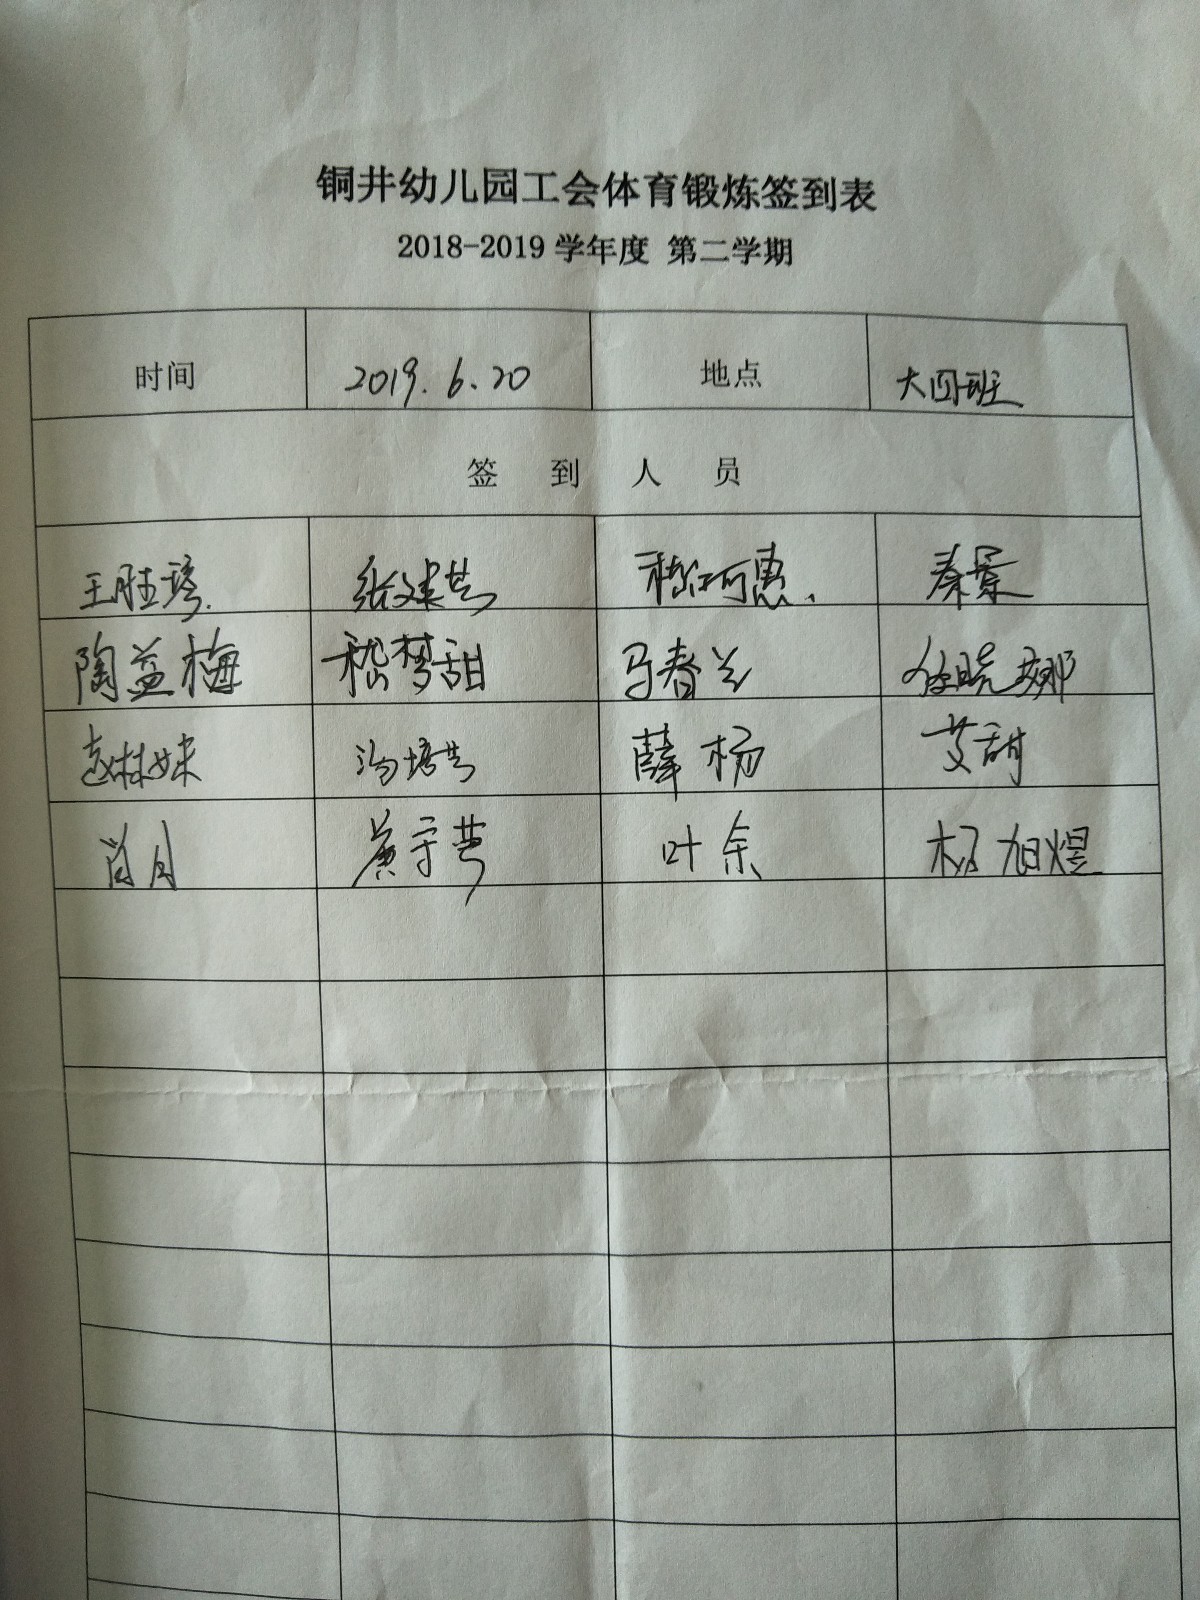 铜井幼儿园工会体育锻炼签到表
2018-2019 学年度 第二学期
时间 2019.6.20 地点 大四班
签到人员
王胜琴 张建芸 嵇珂惠 秦景
陶益梅 嵇梦甜 马春兰 徐晓娜
赵林妹 冯培芸 薛杨 艾甜
肖月 黄宇萼 叶余 杨旭煜